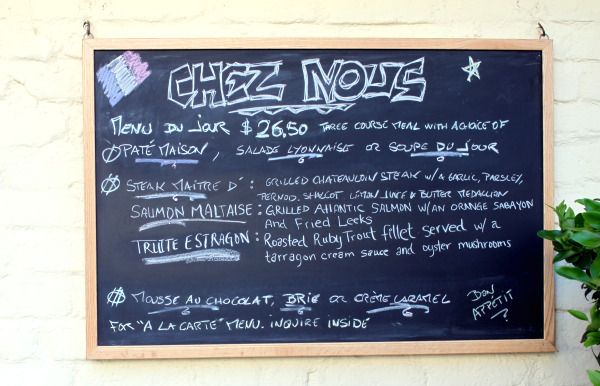 CHEZ NOUS
MENU DU JOUR $26,50 THREE COURSE MEAL WITH A CHOICE OF
PATÉ MAISON, SALADE LYONNAISE OR SOUPE DU JOUR
STEAK MAITRE D': GRILLED CHATEAUBOIN STEAK W/ A GARLIC, PARSLEY,
PERNOD, SHALLOT, LEMON JUICE & BUTTER MEDALLION
SAUMON MALTAISE: GRILLED ATLANTIC SALMON W/AN ORANGE SABAYON
And Fried Leeks
TRUITE ESTRAGON: Roasted Ruby Trout fillet served w/ a
tarragon cream sauce and oyster mushrooms
MOUSSE AU CHOCOLAT, BRIE OR CRÈME CARAMEL
BON APPÉTIT
FOR "A LA CARTE" MENU. INQUIRE INSIDE